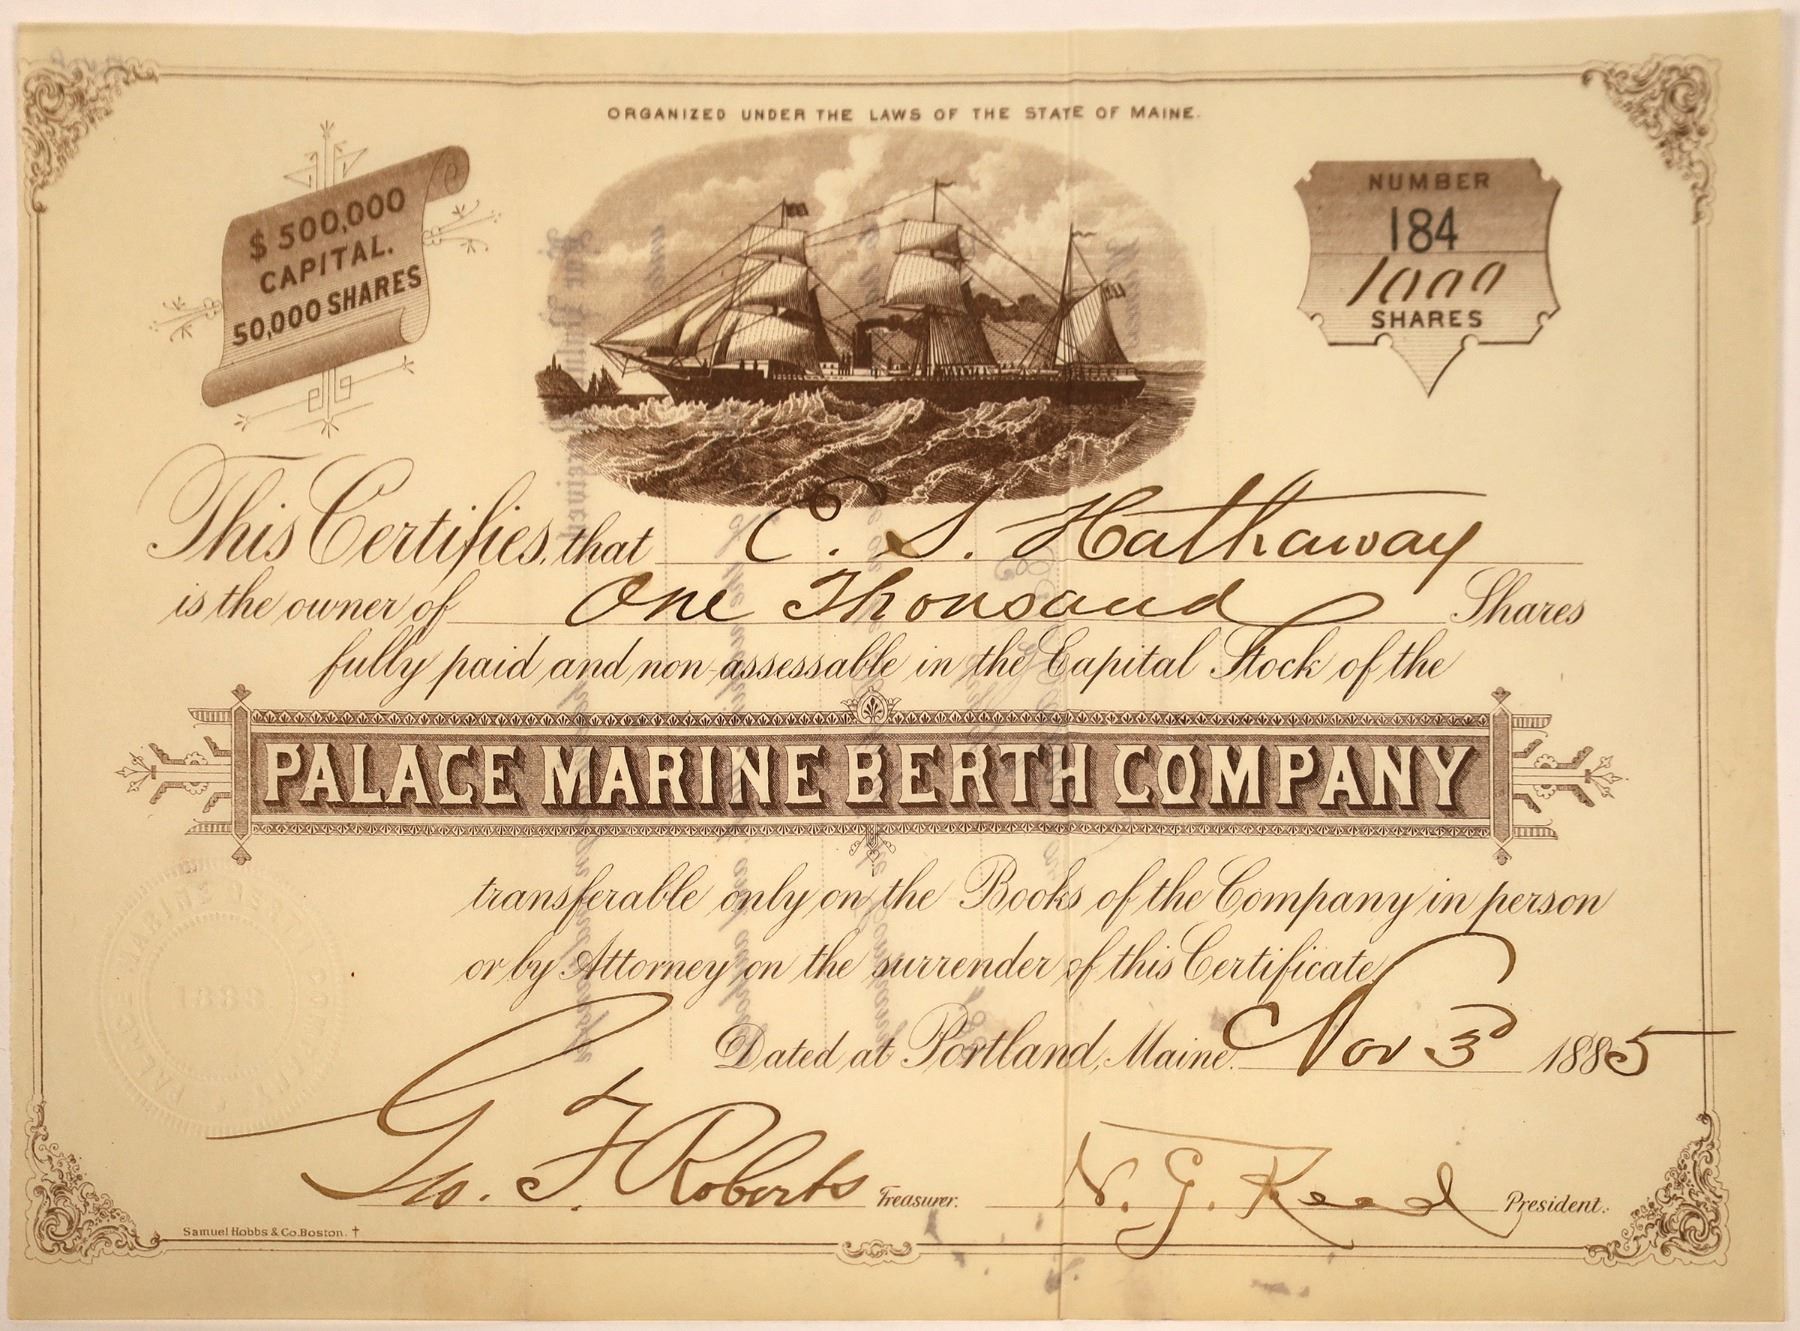 ORGANIZED UNDER THE LAWS OF THE STATE OF MAINE.
$ 500,000
CAPITAL.
50,000 SHARES
NUMBER
184
1000
SHARES
This Certifies, that C. S. Hathaway
is the owner of One Thousand Shares
fully paid and non-assessable in the Capital Stock of the
PALACE MARINE BERTH COMPANY
transferable only on the Books of the Company in person
or by Attorney on the surrender of this Certificate
Dated at Portland, Maine. Nov 3d 1885
PALACE MARINE BERTH CO
1883
Geo. F. Roberts Treasurer. N. G. Read President.
Samuel Hobbs & Co. Boston. †